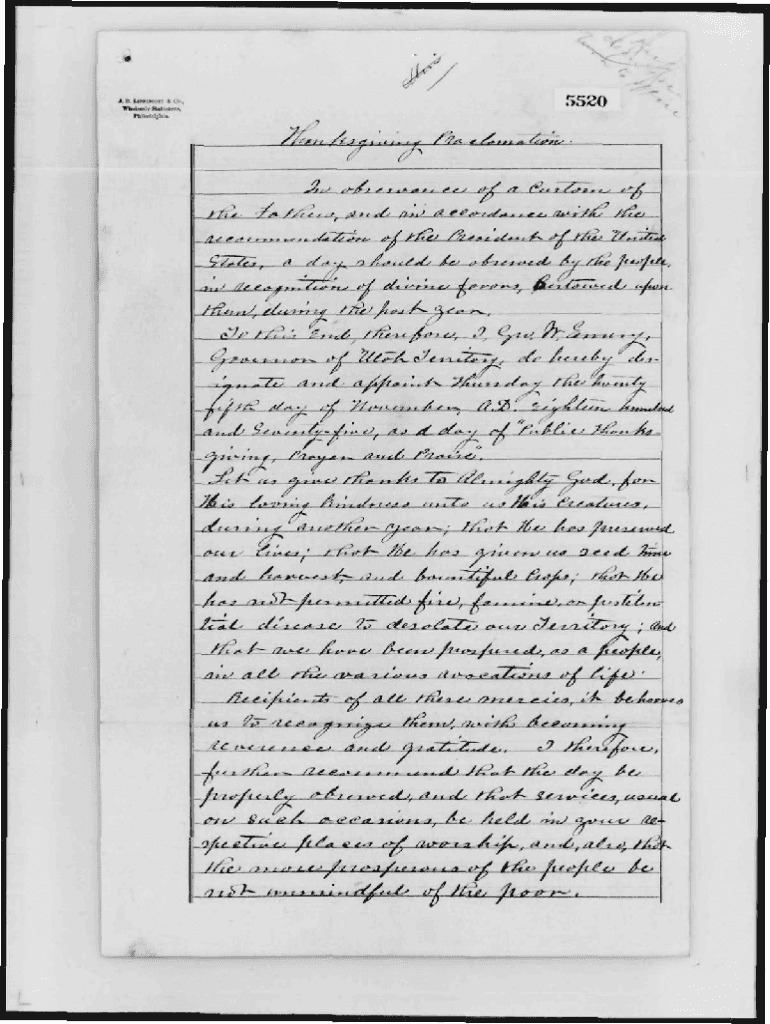 5520
A. B. Lippincott & Co.,
Wholesale Stationers,
Philadelphia.
Thanksgiving Proclamation.
In observance of a custom of
the Fathers, and in accordance with the
recommendation of the President of the United
States, a day should be observed by the people,
in recognition of divine favors, bestowed upon
them, during the past year.
To this end, therefore, I, Geo. W. Emery,
Governor of Utah Territory, do hereby des-
ignate and appoint Thursday the twenty
fifth day of November, A.D. eighteen hundred
and Seventy-five, as a day of "Public Thanks-
giving, Prayer and Praise".
Let us give thanks to Almighty God, for
His loving kindness unto us His creatures,
during another year; that He has preserved
our lives; that He has given us seed time
and harvest, and bountiful crops; that He
has not permitted fire, famine, or pestilen-
tial disease to desolate our Territory; and
that we have been prospered, as a people,
in all the various avocations of life.
Recipients of all these mercies, it behooves
us to recognize them, with becoming
reverence and gratitude. I therefore,
further recommend that the day be
properly observed, and that services, usual
on such occasions, be held in your re-
spective places of worship, and, also, that
the more prosperous of the people be
not unmindful of the poor.